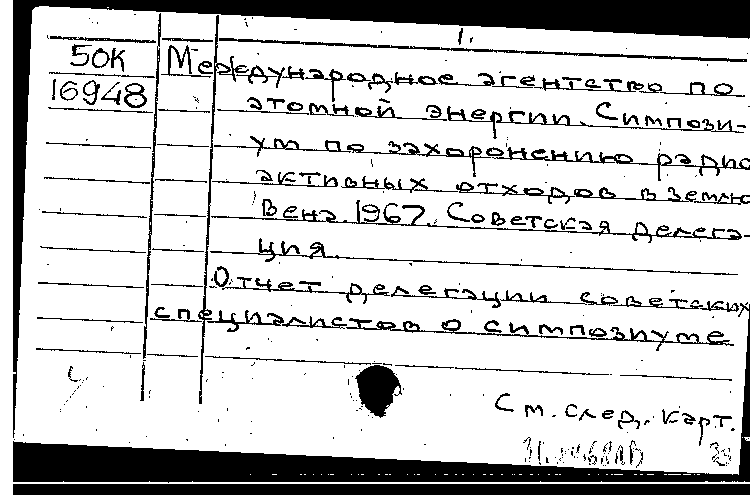 1.
50К Международное агентство по
16948 атомной энергии. Симпози-
ум по захоронению радио
активных отходов в землю
Вена. 1967. Советская делега-
ция.
Отчет делегации советских
специалистов о симпозиуме
См. след. карт.